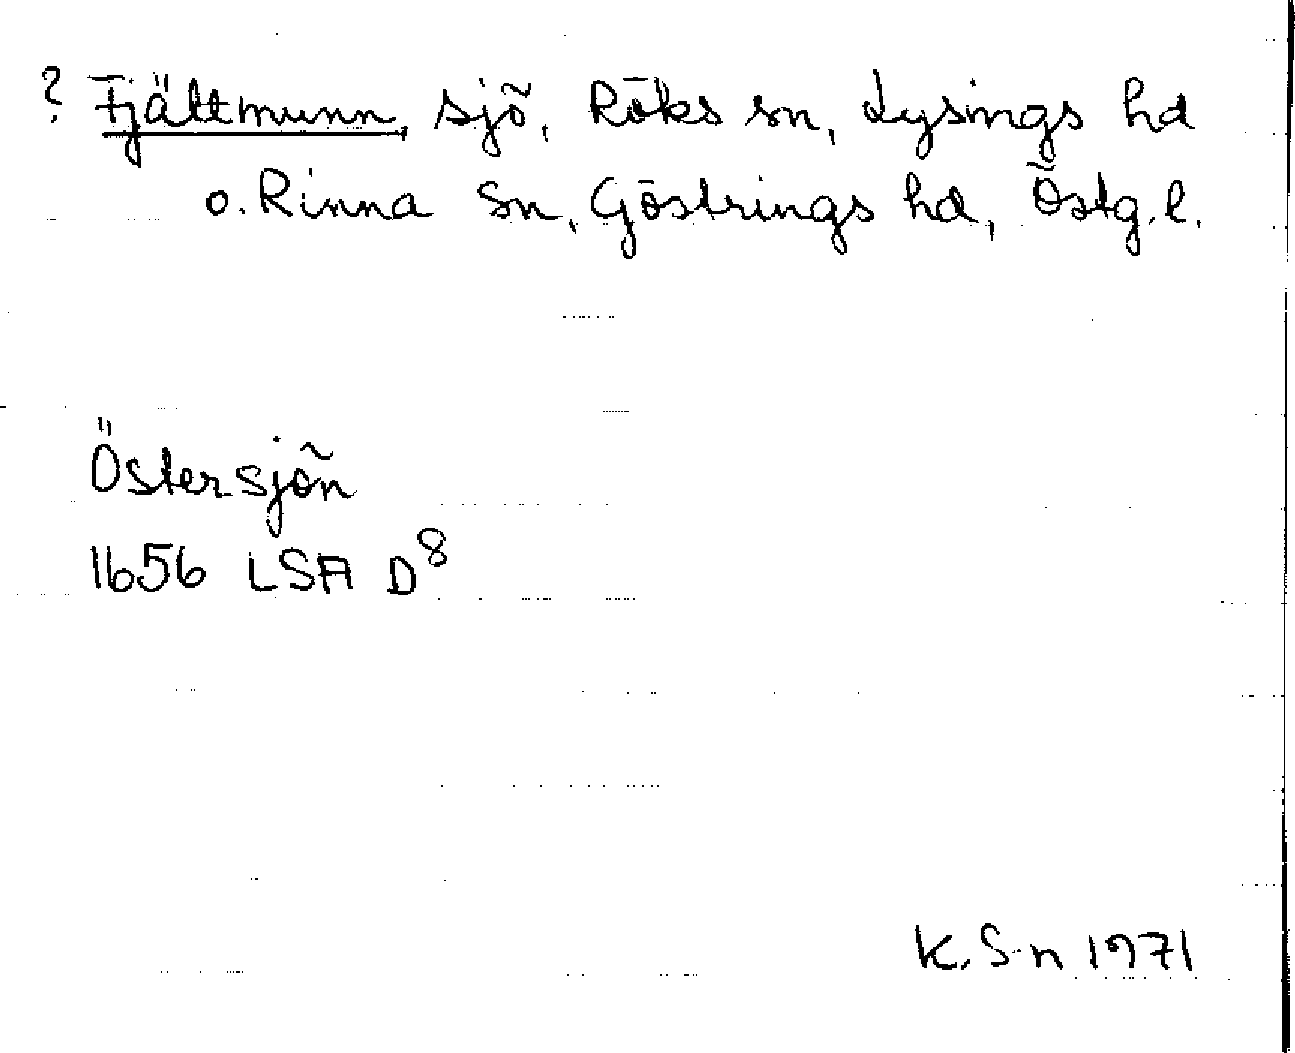 ? Fjättmunn, sjö, Röks sn, Lysings hd
o. Rinna sn, Göstrings hd, Östg. l.
Östersjön
1656 LSA D8
K. S-n 1971